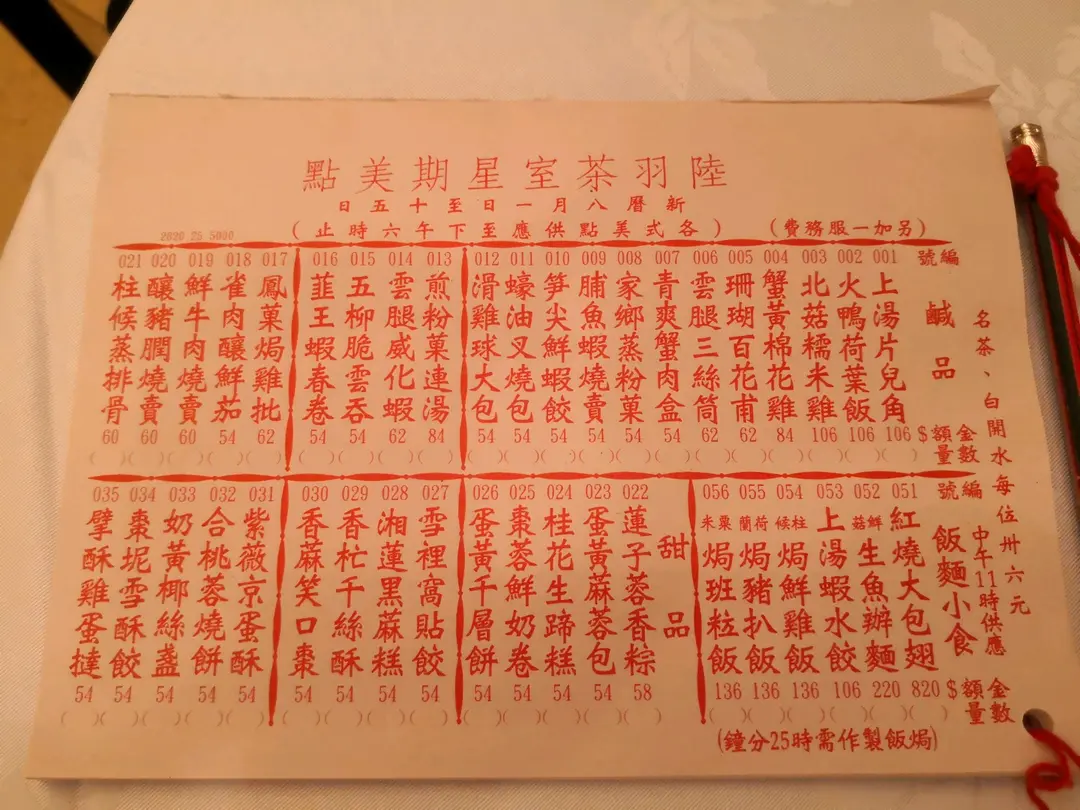 陸羽茶室星期美點
新曆八月一日至十五日
(各式美點供應至下午六時止)
(另加一服務費)
2020 25 5000
名茶、白開水每位卅六元
編號
鹹品
金額 $
數量
001 上湯片兒角 106
002 火鴨荷葉飯 106
003 北菇糯米雞 106
004 蟹黃棉花雞 84
005 珊瑚百花甫 62
006 雲腿三絲筒 62
007 青爽蟹肉盒 54
008 家鄉蒸粉菓 54
009 脯魚蝦燒賣 54
010 筍尖鮮蝦餃 54
011 蠔油叉燒包 54
012 滑雞球大包 54
013 煎粉菓連湯 84
014 雲腿威化蝦 62
015 五柳脆雲吞 54
016 韮王蝦春卷 54
017 鳳菓焗雞批 62
018 雀肉釀鮮茄 54
019 鮮牛肉燒賣 60
020 釀豬膶燒賣 60
021 柱候蒸排骨 60
編號
飯麵小食
中午11時供應
金額 $
數量
051 紅燒大包翅 820
052 鮮菇生魚辦麵 220
053 上湯蝦水餃 106
054 柱候焗鮮雞飯 136
055 荷蘭焗豬扒飯 136
056 粟米焗班粒飯 136
(焗飯製作需時25分鐘)
甜品
022 蓮子蓉香粽 58
023 蛋黃麻蓉包 54
024 桂花生蹄糕 54
025 棗蓉鮮奶卷 54
026 蛋黃千層餅 54
027 雪裡窩貼餃 54
028 湘蓮黑麻糕 54
029 香杧千絲酥 54
030 香麻笑口棗 54
031 紫薇京蛋酥 54
032 合桃蓉燒餅 54
033 奶黃椰絲盞 54
034 棗坭雪酥餃 54
035 擘酥雞蛋撻 54